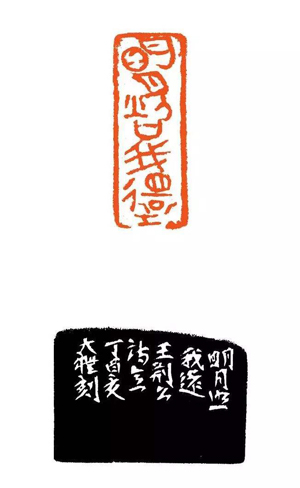 明月照我還
明月照
我還
王荊公
詩
丁酉亥
大刻